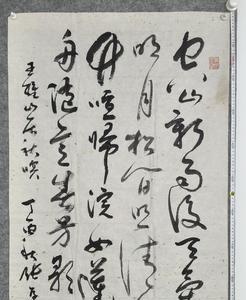 空山新雨後天氣
明月松間照清
竹喧歸浣女蓮
舟隨意春芳歇
王維山居秋暝 丁酉秋張